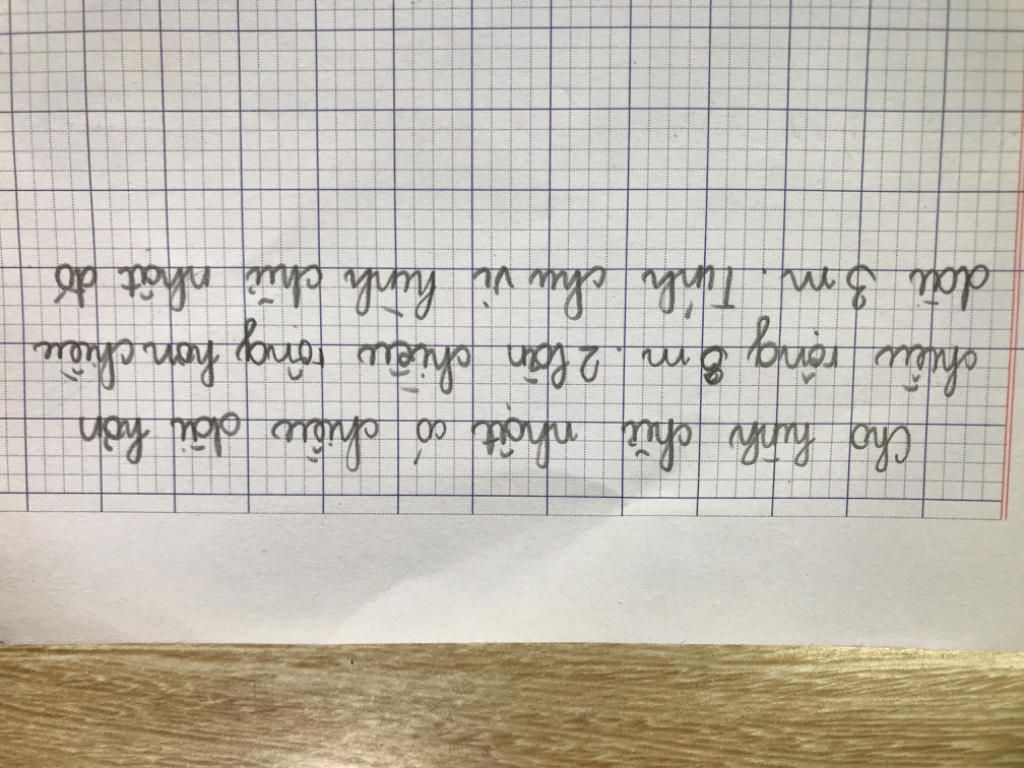 Cho hình chữ nhật có chiều dài hơn
chiều rộng 8 m. 2 lần chiều rộng hơn chiều
dài 3 m. Tính chu vi hình chữ nhật đó